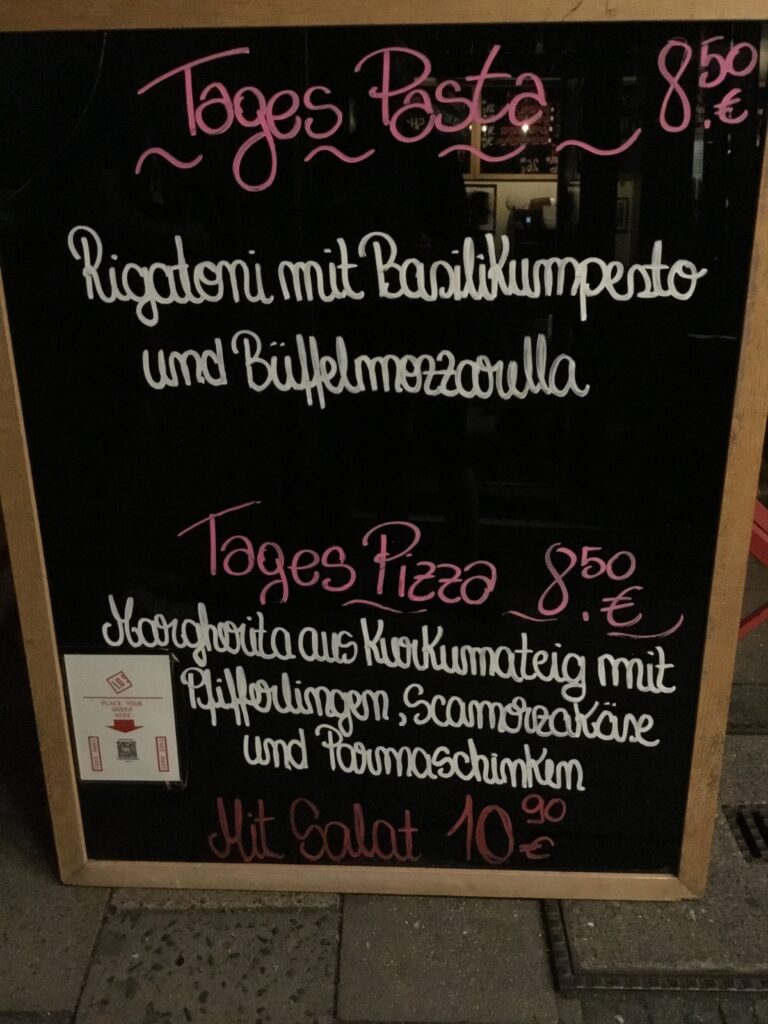 Tages Pasta 8.50 €
Rigatoni mit Basilikumpesto
und Büffelmozzarella
Tages Pizza 8.50 €
Margherita aus Kurkumateig mit
Pfifferlingen, Scamorzakäse
und Parmaschinken
Mit Salat 10.90 €
PLACE YOUR
ORDER
HERE